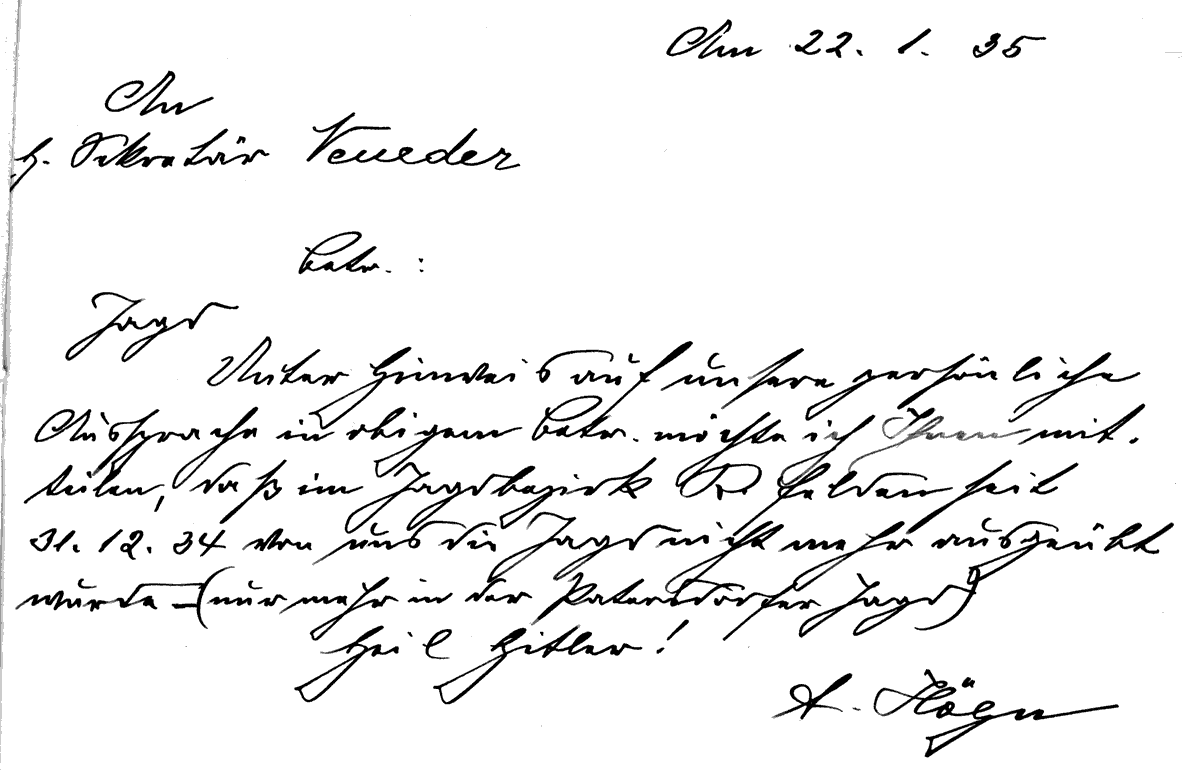 Am 22. 1. 35
An
H. Sekretär Veneder
Betr. :
Jagd
Unter Hinweis auf unsere persönliche
Aussprache in obigem Betr. möchte ich Ihnen mit-
teilen, daß im Jagdbezirk felden seit
31. 12. 34 von uns die Jagd nicht mehr ausgeübt
wurde – (nur mehr in der Patersdorfer Jagd)
Heil Hitler!
A. Högn